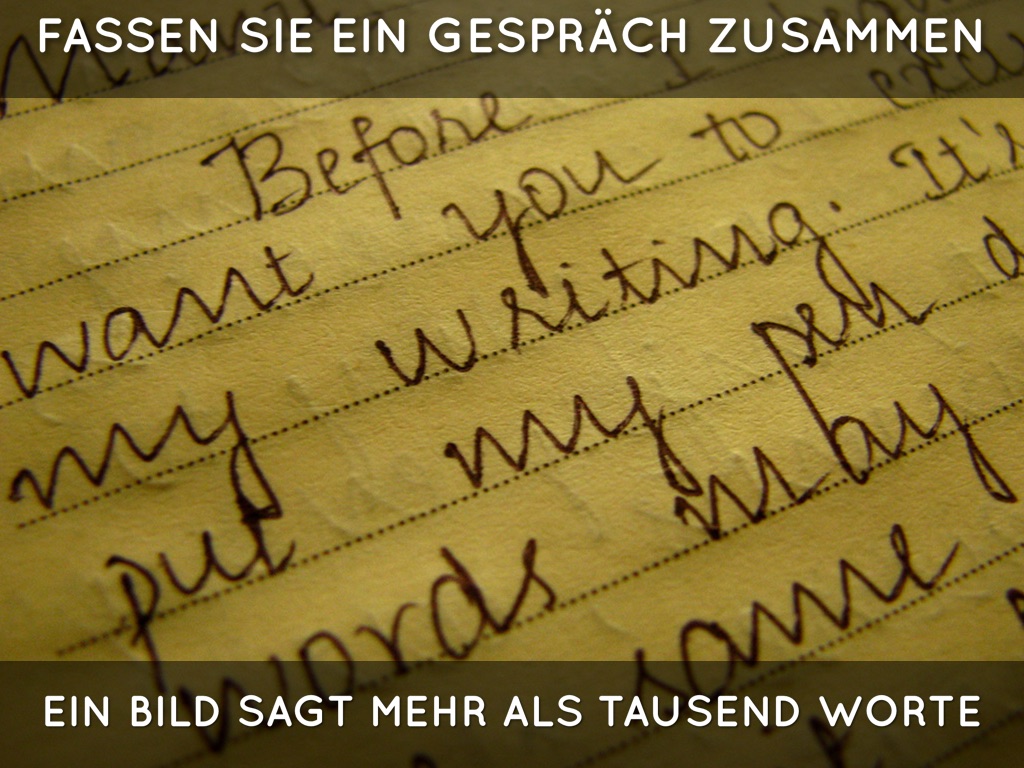 FASSEN SIE EIN GESPRÄCH ZUSAMMEN
Before I
want you to
my writing. It's
put my pen
words may
some
EIN BILD SAGT MEHR ALS TAUSEND WORTE